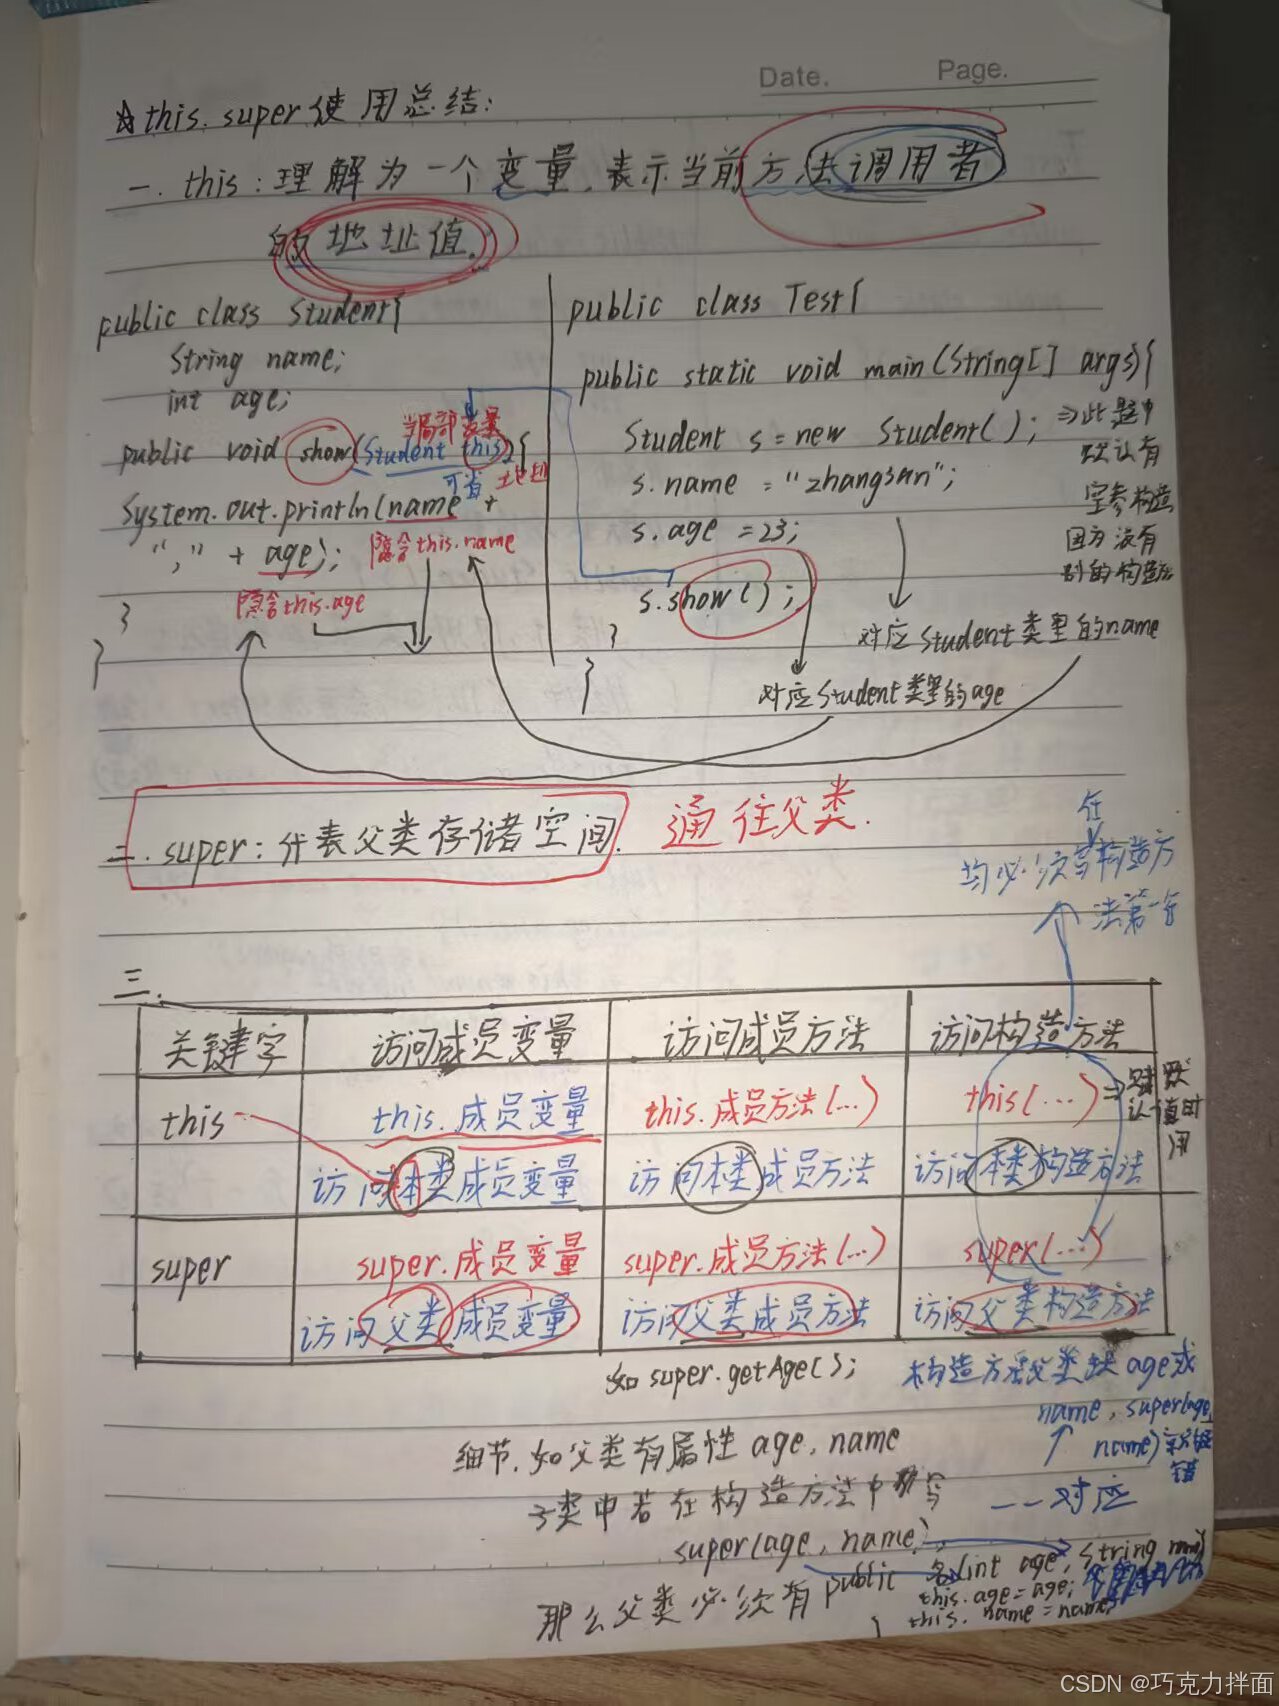 Date.
Page.
☆this.super使用总结:
一.this:理解为一个变量,表示当前方法调用者
的地址值.
public class Student{
String name;
int age;
当局部变量
public void show(Student this){
可省
System.out.println(name +
"," + age);
隐含this.name
隐含this.age
}
}
public class Test{
public static void main(String[] args){
Student s=new Student(); ⇒此题中
默认有
空参构造
因为没有
别的构造
s.name = "zhangsan";
s.age =23;
s.show();
}
}
对应Student类里的name
对应Student类里的age
二.super:代表父类存储空间.
通往父类.
在
均必须写构造方
法第一行
三.
关键字
访问成员变量
访问成员方法
访问构造方法
this
this.成员变量
this.成员方法(...)
this(...)⇒
默
认值时
用
访问本类成员变量
访问本类成员方法
访问本类构造方法
super
super.成员变量
super.成员方法(...)
super(...)
访问父类成员变量
访问父类成员方法
访问父类构造方法
如super.getAge();
构造方法父类缺age或
name, super(age,
name)
错
细节.如父类有属性age, name
子类中若在构造方法中写
一一对应
super(age, name),
那么父类必须有public
(int age, String name)
this.age=age;
this.name=name;
}
CSDN @巧克力拌面